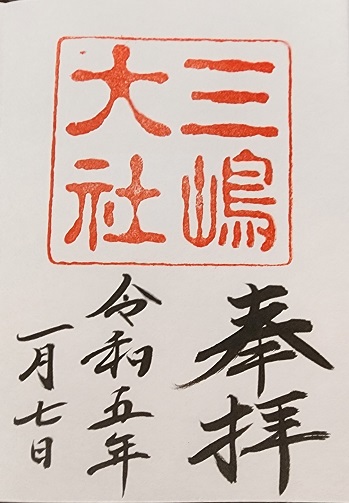 三嶋
大社
奉拝
令和五年
一月七日